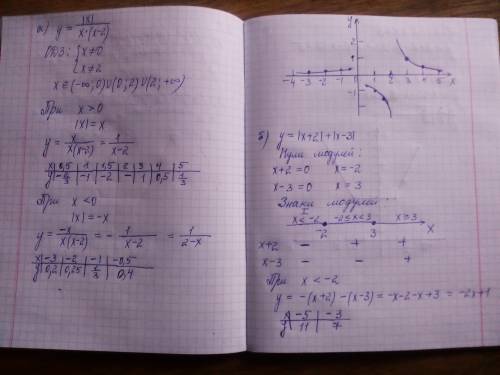 а) y = |x| / x·(x-2)
ОДЗ: { x ≠ 0
x ≠ 2
x ∈ (-∞; 0) ∪ (0; 2) ∪ (2; +∞)
При x > 0
|x| = x
y = x / x(x-2) = 1 / x-2
x | 0,5 | 1 | 1,5 | 2 | 3 | 4 | 5
y | -2/3 | -1 | -2 | - | 1 | 0,5 | 1/3
При x < 0
|x| = -x
y = -x / x(x-2) = - 1 / x-2 = 1 / 2-x
x | -3 | -2 | -1 | -0,5
y | 0,2 | 0,25 | 1/3 | 0,4
y
2
-4 -3 -2 -1 1 2 3 4 5 x
-1
б) y = |x+2| + |x-3|
Нули модулей:
x+2 = 0 x = -2
x-3 = 0 x = 3
Знаки модулей:
I
x < -2 -2 ≤ x < 3 x ≥ 3
-2 3 x
x+2 - + +
x-3 - - +
При x < -2
y = -(x+2) - (x-3) = -x-2-x+3 = -2x+1
x | -5 | -3
y | 11 | 7